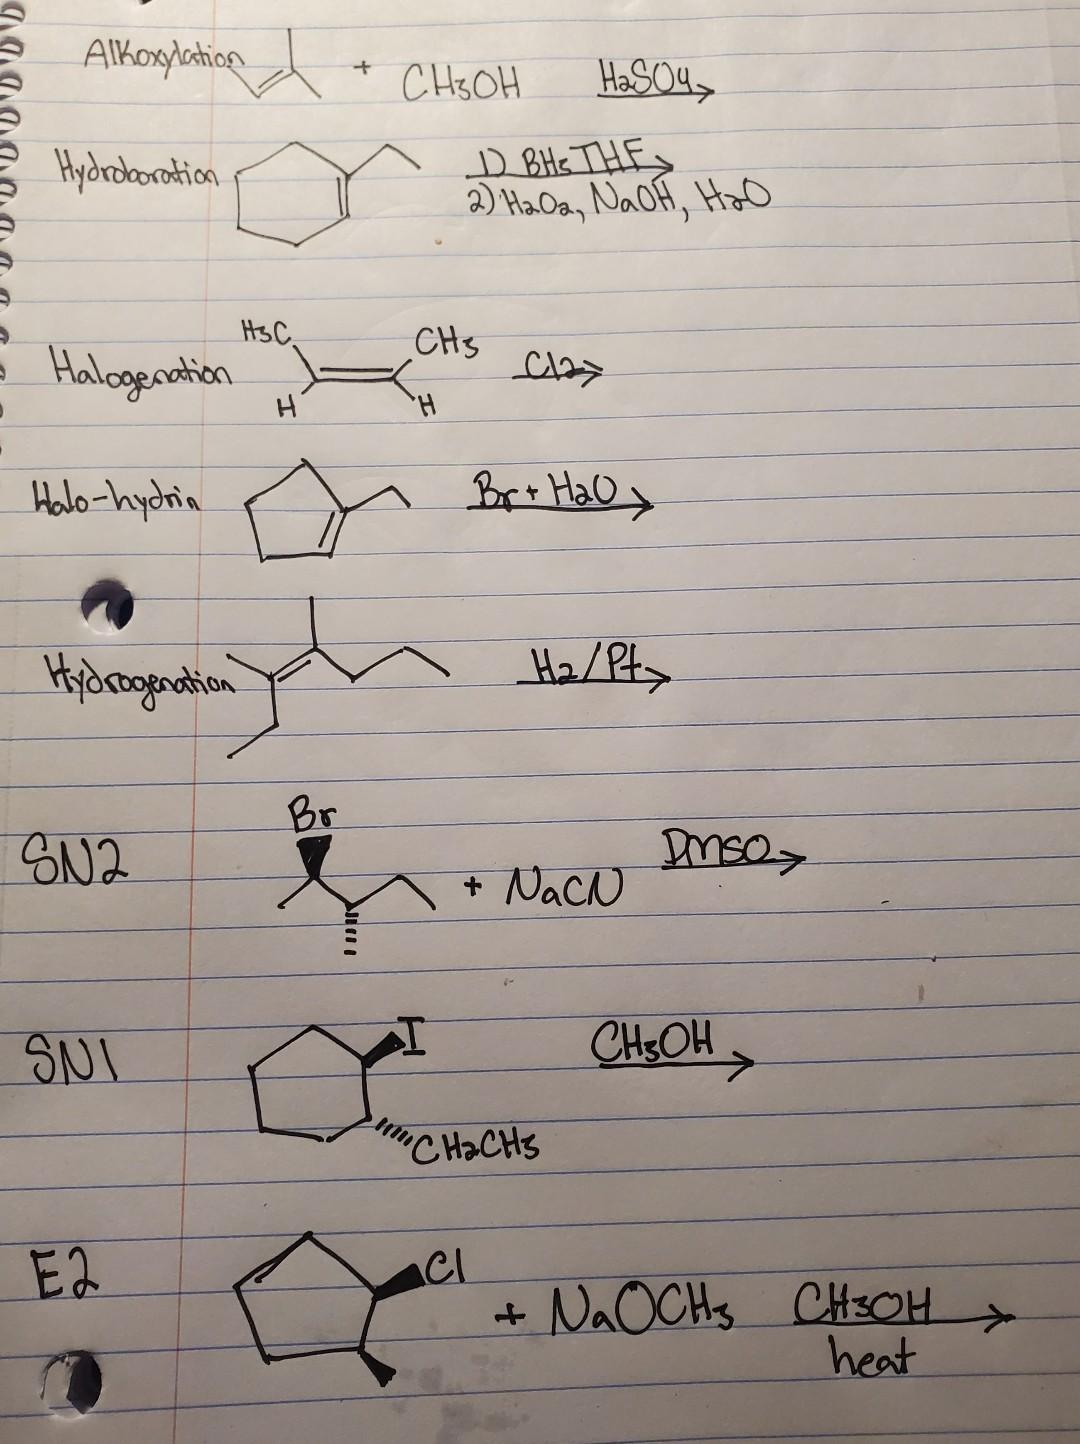 Alkoxylation + CH3OH H2SO4
Hydroboration 1) BH3 THF
2) H2O2, NaOH, H2O
H3C CH3
Halogenation Cl2
H H
Halo-hydrin Br + H2O
Hydrogenation H2/Pt
Br
SN2 + NaCN DMSO
SN1 I CH3OH
CH2CH3
E2 Cl + NaOCH3 CH3OH
heat